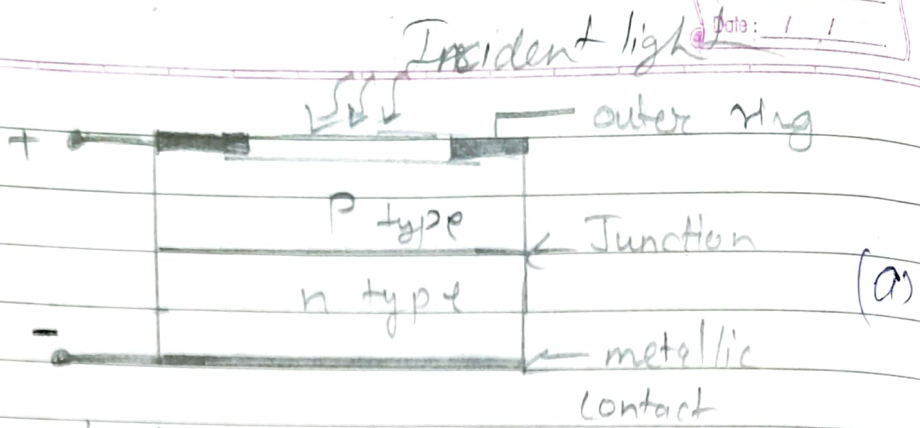 Date: / /
Incident light
+
outer ring
P type
Junction
n type
(a)
-
metallic
contact